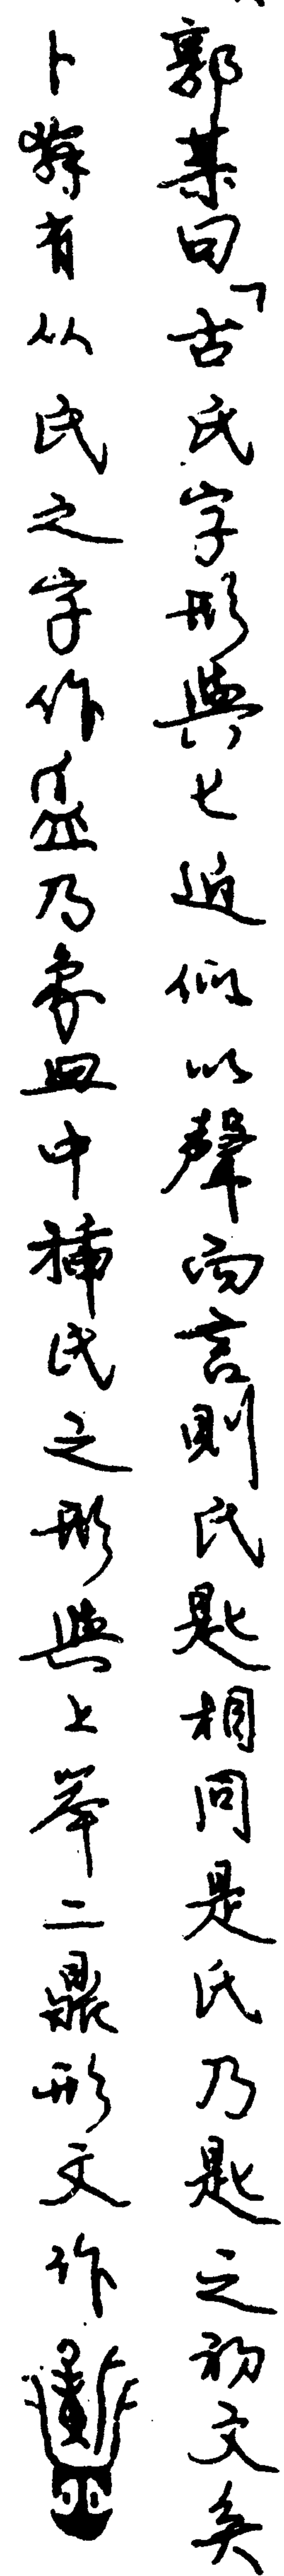 郭某曰「古氏字形與匕近似以聲而言則氏匙相同是氏乃匙之初文矣
卜辭有从氏之字作乃象皿中插氏之形與上舉二鼎形文作